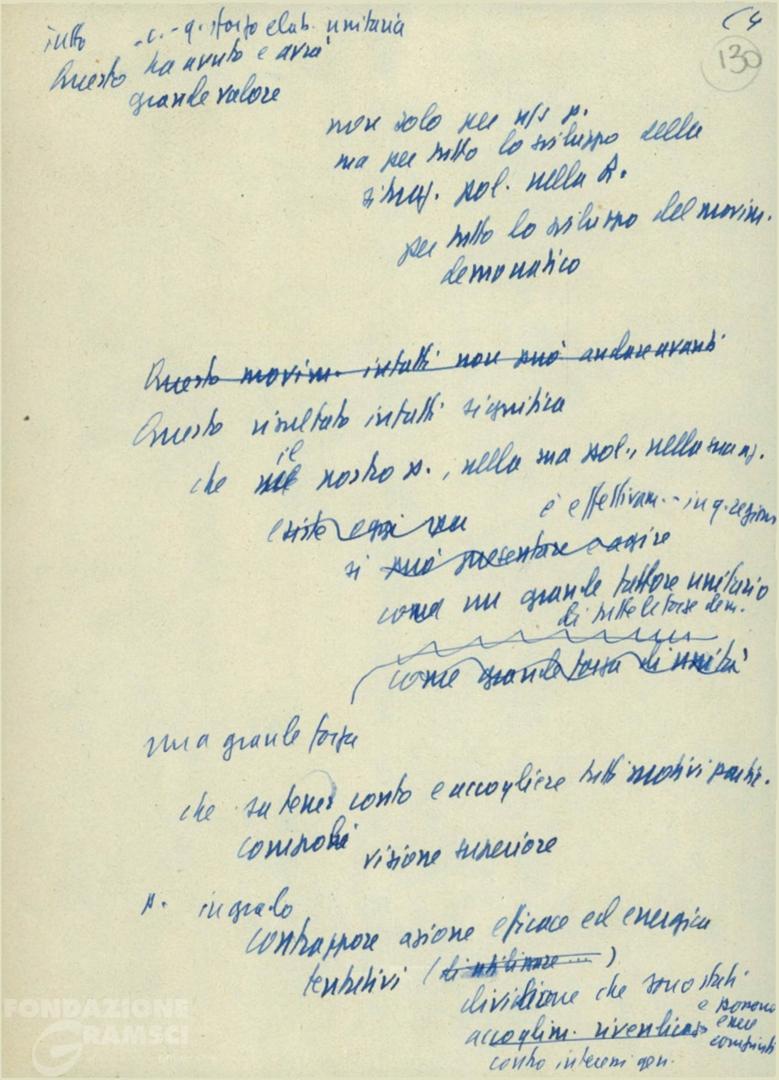 (4
130
tutto .c.- q. sforzo elab. unitaria
Questo ha avuto e avrà
grande valore
non solo per n/s p.
ma per tutto lo sviluppo della
situaz. pol. nella R.
per tutto lo sviluppo del movim.
democratico
Questo movim. infatti non può andare avanti
Questo risultato infatti significa
che il nostro p., nella sua pol., nella sua az.
esiste oggi
è effettivam. - in q. regione
si può presentare e agire
come un grande fattore unitario
di tutte le forze dem.
come grande forza di unità
una grande forza
che sa tener conto e accogliere tutti motivi partic.
comporli visione superiore
p. in grado
contrapporre azione efficace ed energica
tentativi (di utilizzare ...)
divisione che sono stati
e possono
accoglim. rivendicaz. essere
compiuti
contro interessi gen.
FONDAZIONE
GRAMSCI